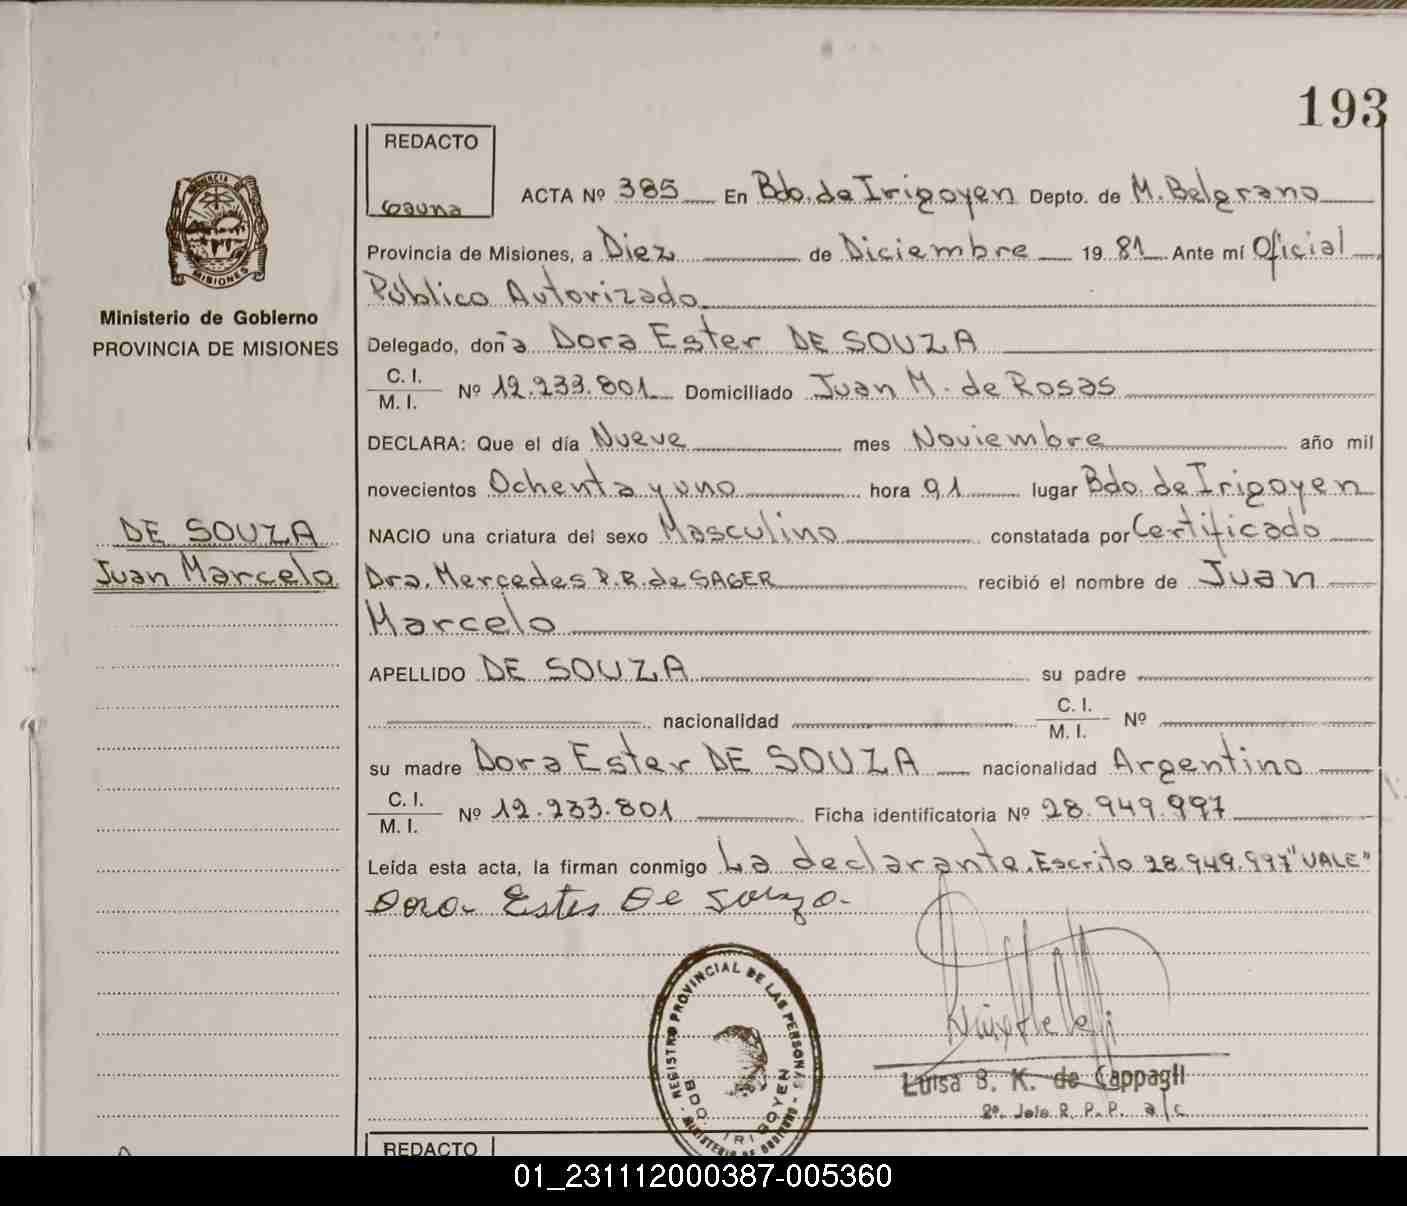 193
REDACTO
Gauna
ACTA Nº 385 En Bdo. de Irigoyen Depto. de M. Belgrano
Provincia de Misiones, a Diez de Diciembre 19 81 Ante mí Oficial
Público Autorizado
Ministerio de Gobierno
PROVINCIA DE MISIONES
Delegado, doña Dora Ester DE SOUZA
C. I.
M. I. Nº 12.233.801 Domiciliado Juan M. de Rosas
DECLARA: Que el día Nueve mes Noviembre año mil
novecientos Ochenta y uno hora 01 lugar Bdo. de Irigoyen
DE SOUZA
Juan Marcelo
NACIO una criatura del sexo Masculino constatada por Certificado
Dra. Mercedes P.R. de SAGER recibió el nombre de Juan
Marcelo
APELLIDO DE SOUZA su padre
nacionalidad C. I.
M. I. Nº
su madre Dora Ester DE SOUZA nacionalidad Argentino
C. I.
M. I. Nº 12.233.801 Ficha identificatoria Nº 28.949.997
Leída esta acta, la firman conmigo La declarante. Escrito 28.949.997 "VALE"
Dora Ester De Souza
REGISTRO PROVINCIAL DE LAS PERSONAS
BDO. IRIGOYEN
MINISTERIO DE GOBIERNO
Luisa S. K. de Cappagli
2º. Jefe R. P. P. a/c
REDACTO
01_231112000387-005360